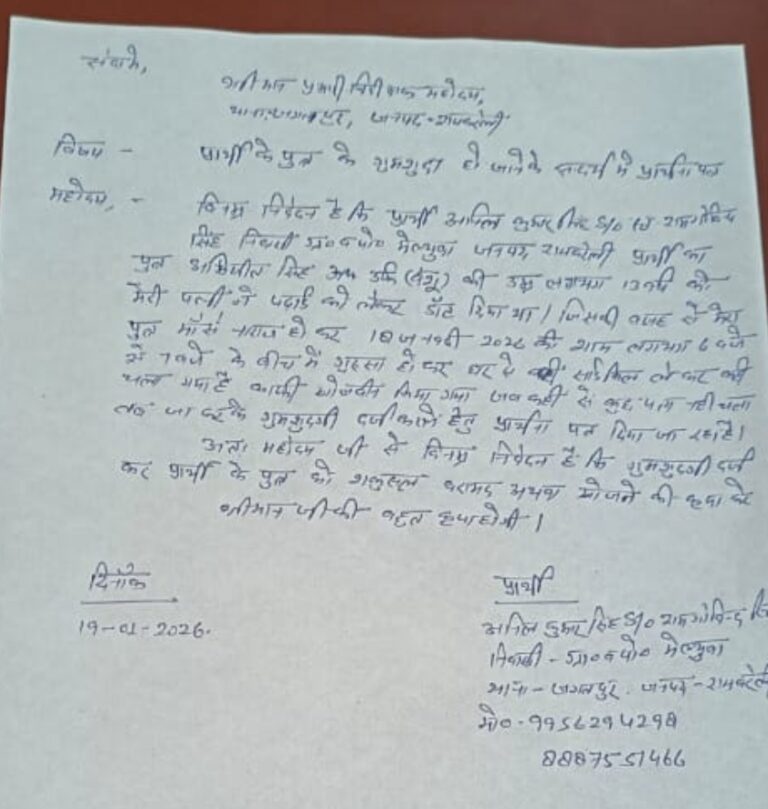 सेवामे,
श्रीमान प्रभारी निरीक्षक महोदय,
थाना जगतपुर, जनपद - रायबरेली
विषय - प्रार्थी के पुत्र के गुमशुदा हो जाने के सन्दर्भ मे प्रार्थना पत्र
महोदय, - विनम्र निवेदन है कि प्रार्थी अनिल कुमार सिंह S/o रामगोविन्द
सिंह निवासी ग्रा० व पो० जनपद रायबरेली प्रार्थी का
पुत्र सिंह उर्फ की उम्र लगभग 13 वर्ष को
मेरी पत्नी ने पढाई को लेकर डाँट दिया था। जिसकी वजह से मेरा
पुत्र माँ से नाराज हो कर 18 जनवरी 2026 की शाम लगभग 6 बजे
से 7 बजे के बीच में गुस्सा हो कर घर से साईकिल लेकर कही
चला गया है काफी खोजबीन किया गया जब कही से कुछ पता नही चला
तब जा करके गुमशुदगी दर्ज कराने हेतु प्रार्थना पत्र दिया जा रहा है।
अतः महोदय जी से विनम्र निवेदन है कि गुमशुदगी दर्ज
कर प्रार्थी के पुत्र को सकुशल बरामद अथवा खोजने की कृपा करे
श्रीमान जी की बहुत कृपा होगी।
दिनाँक
19-01-2026.
प्रार्थी
अनिल कुमार सिंह S/o रामगोविन्द
निवासी - ग्रा० व पो०
थाना - जगतपुर. जनपद - रायबरेली
मो० - 9956294298
8887551466